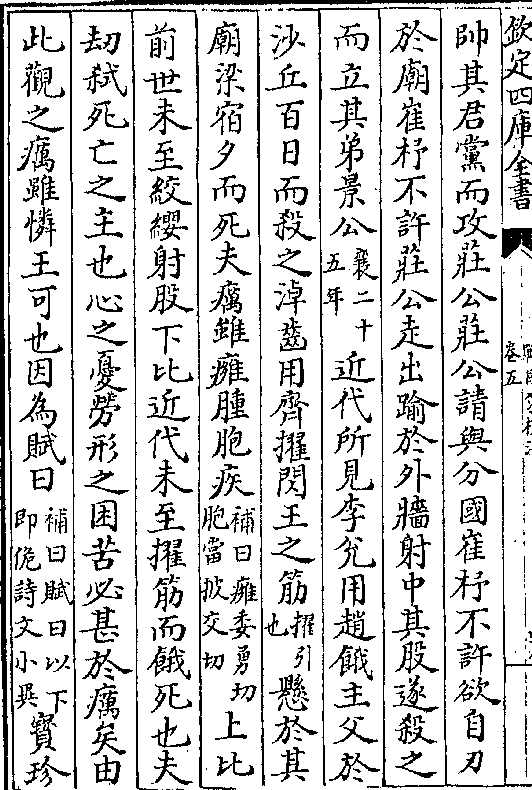 欽定四庫全書
卷五
帥其君黨而攻莊公莊公請與分國崔杼不許欲自刃
於廟崔杼不許莊公走出踰於外牆射中其股遂殺之
而立其弟景公襄二十五年近代所見李兊用趙餓主父於
沙丘百日而殺之淖齒用齊擢閔王之筋擢引也懸於其
廟梁宿夕而死夫癘雖癰腫胞疾補曰癰委勇切胞當披交切上比
前世未至絞纓射股下比近代未至擢筋而餓死也夫
劫弑死亡之主也心之憂勞形之困苦必甚於癘矣由
此觀之癘雖憐王可也因為賦曰補曰賦曰以下即佹詩文小異寳珍